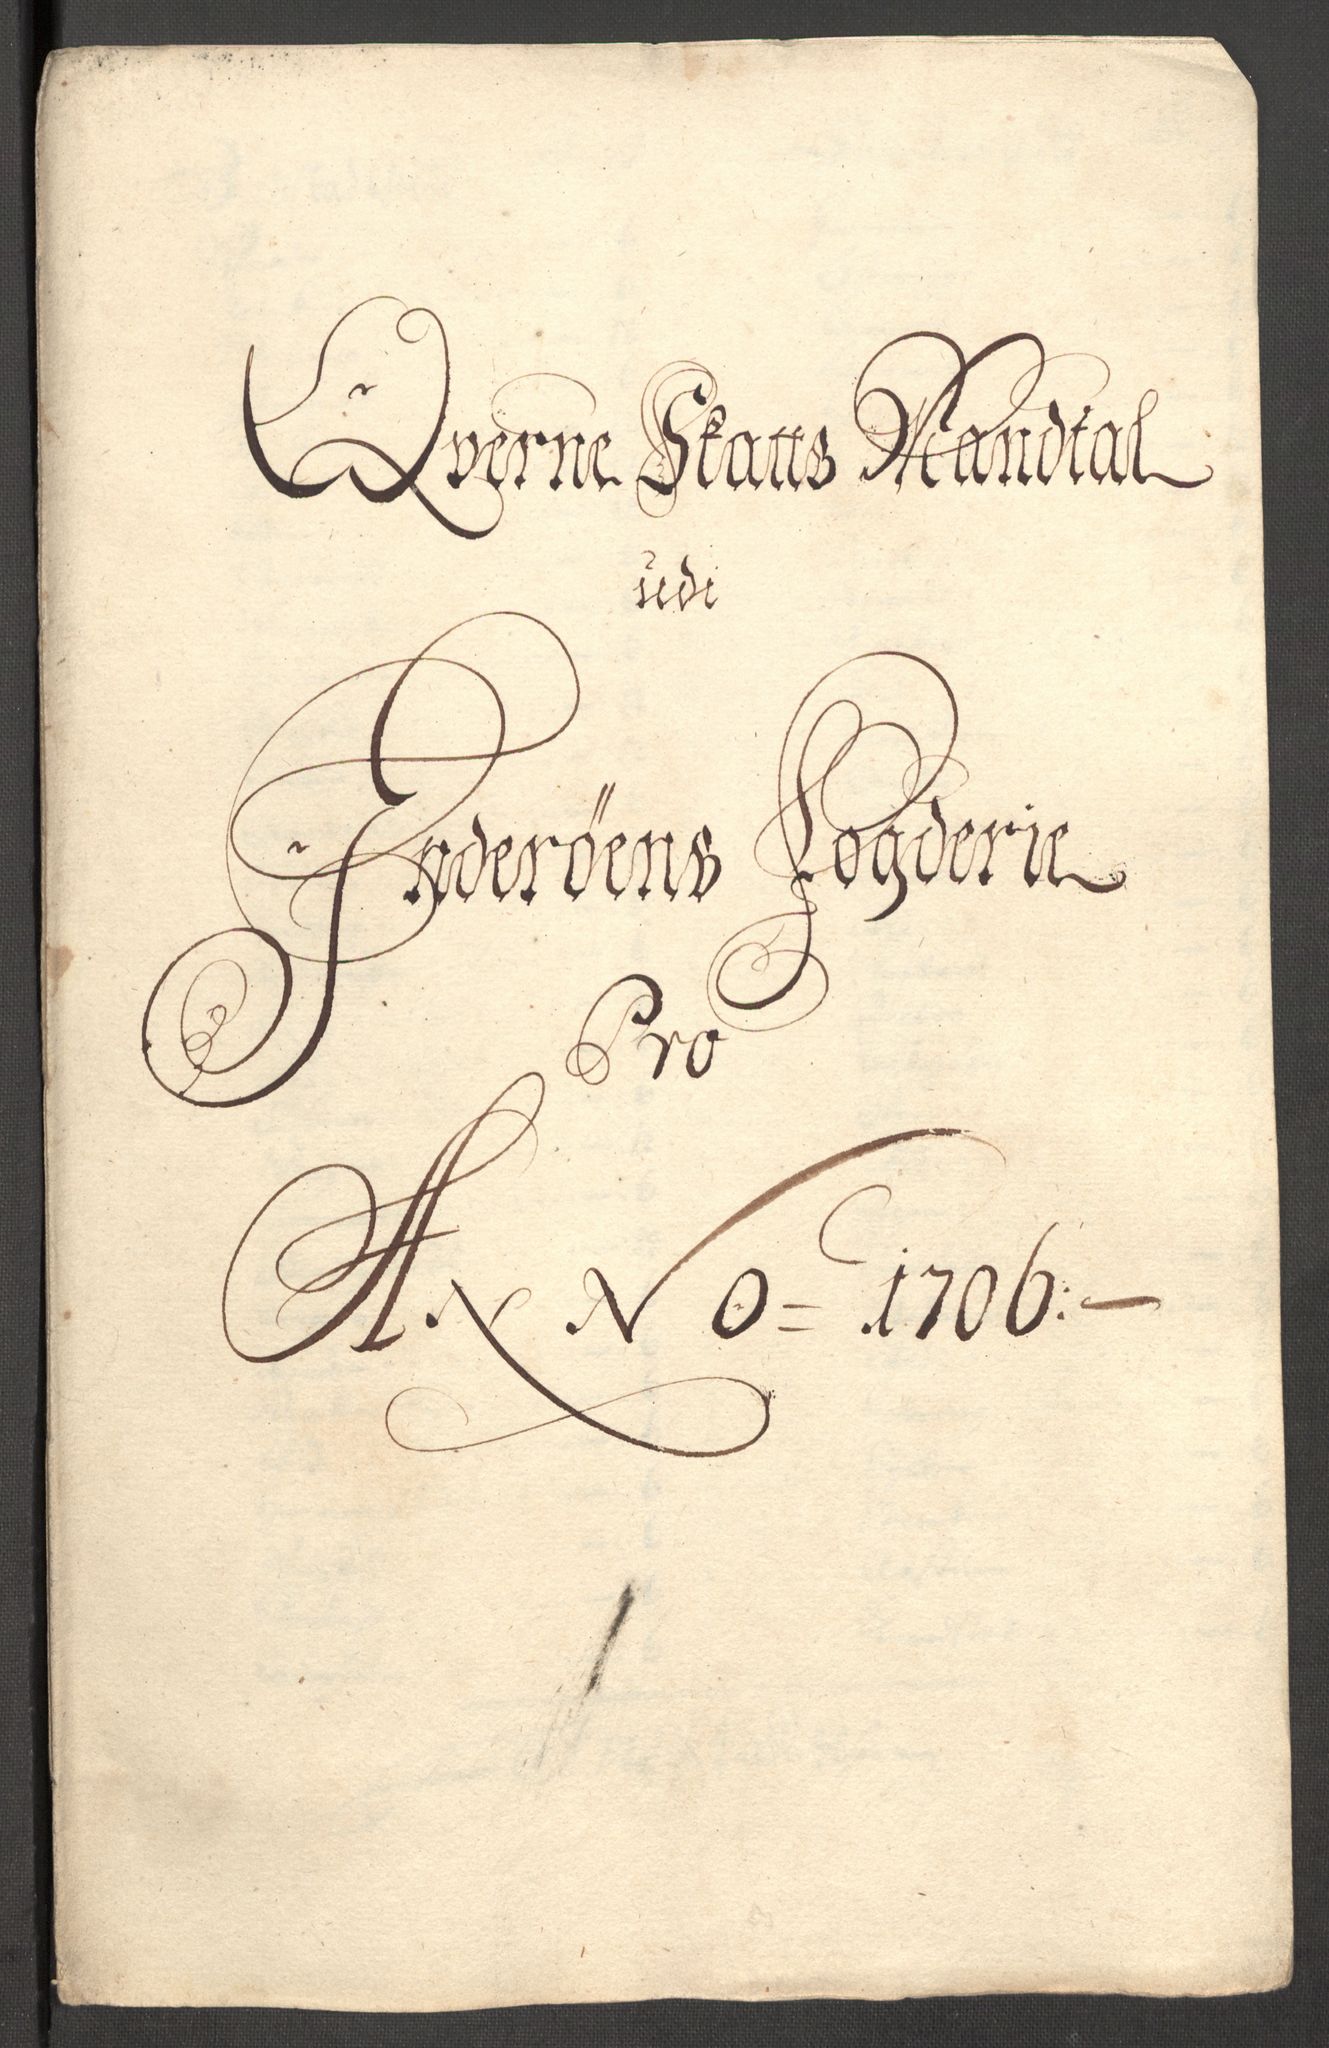 Qverne Skatts Mandtal
udi
Inderöens Fogderie
Pro
ANNO = 1706:—